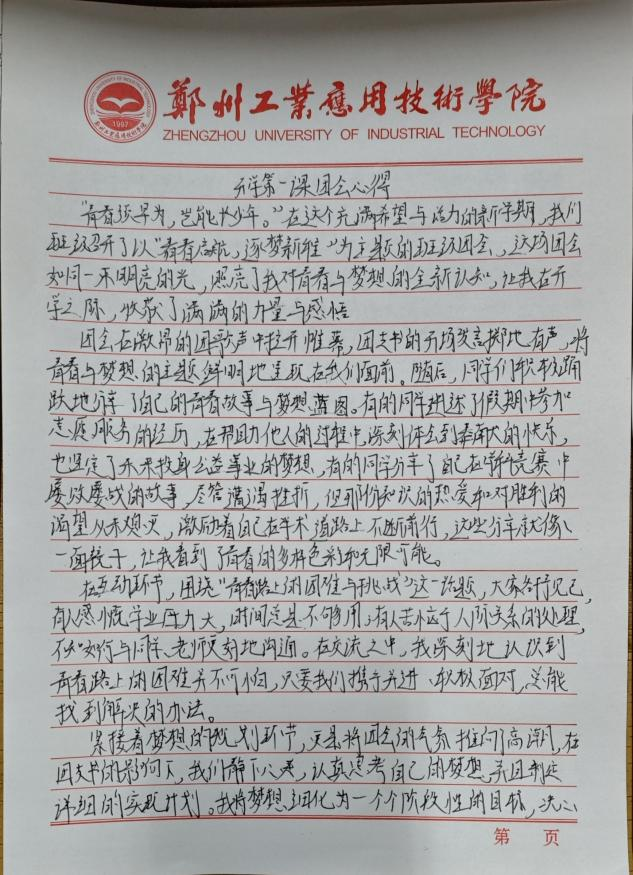 鄭州工業應用技術學院
ZHENGZHOU UNIVERSITY OF INDUSTRIAL TECHNOLOGY
1997
开学第一课团会心得
"青春须早为，岂能长少年。"在这个充满希望与活力的新学期，我们
班级召开了以"青春启航，逐梦新程"为主题的班级团会，这场团会
如同一束明亮的光，照亮了我对青春与梦想的全新认知，让我在开
学之际，收获了满满的力量与感悟
团会在激昂的团歌声中拉开帷幕，团支书的开场发言掷地有声，将
青春与梦想的主题鲜明地呈现在我们面前。随后，同学们积极踊
跃地分享了自己的青春故事与梦想蓝图。有的同学讲述了假期中参加
志愿服务的经历，在帮助他人的过程中深刻体会到奉献的快乐，
也坚定了未来投身公益事业的梦想，有的同学分享了自己在学科竞赛中
屡败屡战的故事，尽管遭遇挫折，但那份知识的热爱和对胜利的
渴望从未熄灭，激励着自己在学术道路上不断前行，这些分享就像
一面镜子，让我看到了青春的多样色彩和无限可能。
在互动环节，围绕"青春路上的困难与挑战"这一话题，大家各抒己见，
有人感慨学业压力大，时间总是不够用；有人苦恼于人际关系的处理，
不知如何与同学、老师更好地沟通。在交流之中，我深刻地认识到
青春路上的困难并不可怕，只要我们携手并进、积极面对，总能
找到解决的办法。
紧接着梦想的规划环节，更是将团会的气氛推向了高潮，在
团支书的影响下，我们静下心来，认真思考自己的梦想，并且制定
详细的实现计划。我将梦想细化为一个个阶段性的目标，决心
第 页